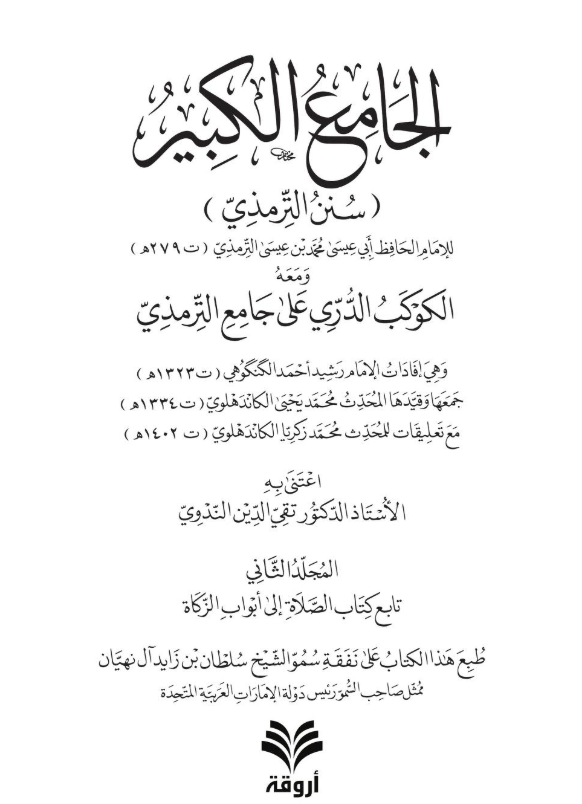 الجَامِعُ الكَبِيرُ
(سُنَنُ التِّرمِذيّ)
للإمَامِ الحَافِظ أَبي عِيسَىٰ محمَّد بْن عِيسَىٰ التِّرمذِيّ (ت ٢٧٩ه)
وَمَعَهُ
الكَوْكَبُ الدُّرّي عَلىٰ جَامِعِ التِّرمِذيّ
وَهِيَ إفَادَاتُ الإمَام رَشيد أحْمَد الكَنكَوُهي (ت ١٣٢٣ه)
جَمَعَهَا وَقيَّدَهَا المُحَدِّثُ مُحَمَّد يَحْيَىٰ الكَاندَهْلَويّ (ت ١٣٣٤ه)
مَعَ تَعلِيقَات للمُحَدِّث مُحَمَّد زَكريّا الكَاندَهْلَويّ (ت ١٤٠٢ه)
اعْتَنَىٰ بِهِ
الأُسْتَاذ الدّكتُور تَقِيّ الدِّيْن النَّدْوِيّ
المُجَلّدُ الثَّانِي
تابع كِتَاب الصَّلَاةِ إلىٰ أبْوابِ الزَّكَاة
طُبِعَ هَٰذا الكتابُ عَلىٰ نَفَقَةِ سُمُوّ الشّيْخ سُلْطَان بْن زَايد آل نهيَّان
ممُثّل صَاحِب السُّمو رَئيس دَوْلة الإمَارَات العَرَبيّة المتّحِدَة
أروقة